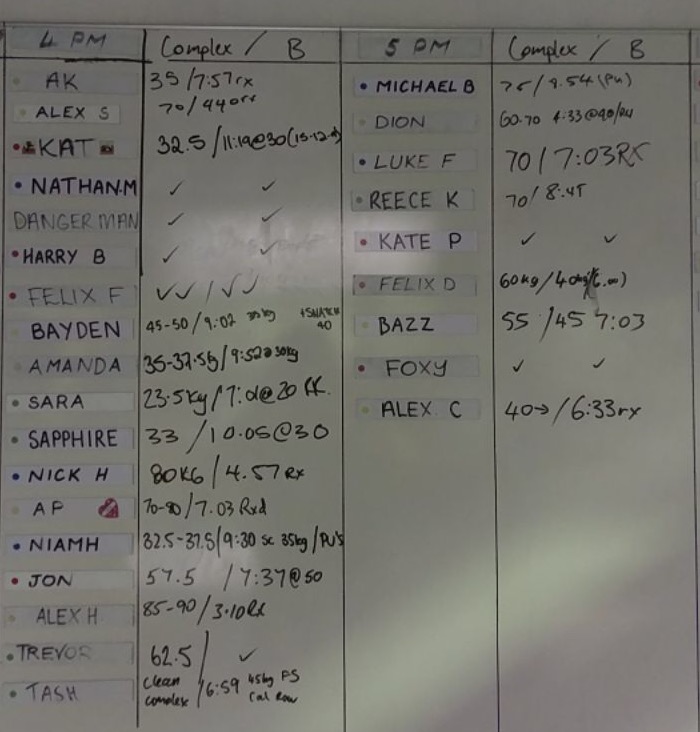 4 PM Complex / B
AK 35/7:57rx
ALEX S 70/
KAT 32.5/11:19@30(15-12-9)
NATHAN.M ✓ ✓
DANGER MAN ✓ ✓
HARRY B ✓ ✓
FELIX F ✓✓/✓✓
BAYDEN 45-50/9:02 35kg +SNATCH 40
AMANDA 35-37.5kg/9:52@30kg
SARA 23.5kg/7: @20
SAPPHIRE 33/10.05@30
NICK H 80KG/4.57Rx
AP 70-80/7.03 Rxd
NIAMH 32.5-37.5/9:30 sc 35kg/PU's
JON 57.5/7:37@50
ALEX H 85-90/3.10Rx
TREVOR 62.5/✓
TASH clean complex/6:59 45kg PS Cal Row
5 PM Complex / B
MICHAEL B 75/8.54(PU)
DION 60-70 4:33@40/
LUKE F 70/7:03RX
REECE K 70/8:45
KATE P ✓ ✓
FELIX D 60kg/
BAZZ 55/45 7:03
FOXY ✓ ✓
ALEX C 40→/6:33rx